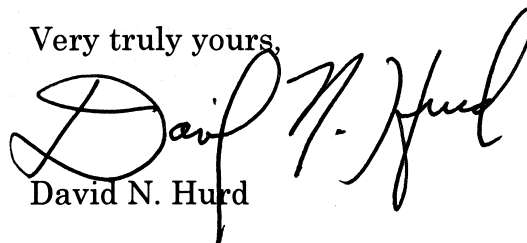 Very truly yours,
David N. Hurd
David N. Hurd